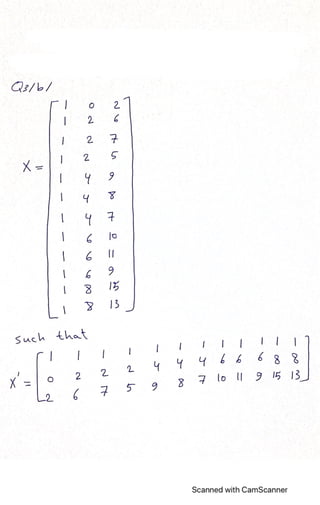 Q3/b/
X =
1 0 2
1 2 6
1 2 7
1 2 5
1 4 9
1 4 8
1 4 7
1 6 10
1 6 11
1 6 9
1 8 15
1 8 13
such that
X' =
1 1 1 1 1 1 1 1 1 1 1 1
0 2 2 2 4 4 4 6 6 6 8 8
2 6 7 5 9 8 7 10 11 9 15 13
Scanned with CamScanner